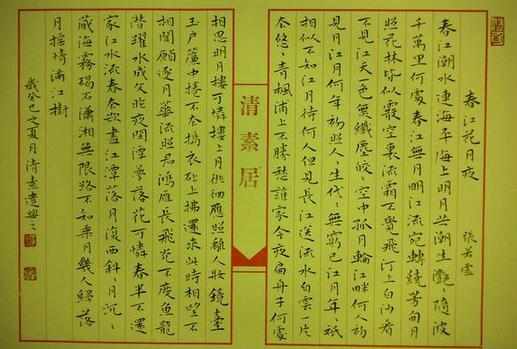 春江花月夜
張若虛
春江潮水連海平海上明月共潮生灩〻隨波
千萬里何處春江無月明江流宛轉繞芳甸月
照花林皆似霰空裏流霜不覺飛汀上白沙看
不見江天一色無纖塵皎〻空中孤月輪江畔何人初
見月江月何年初照人〻生代〻無窮已江月年〻祇
相似不知江月待何人但見長江送流水白雲一片
去悠〻青楓浦上不勝愁誰家今夜扁舟子何處
清素居
相思明月樓可憐樓上月徘徊應照離人妝鏡臺
玉戶簾中捲不去擣衣砧上拂還來此時相望不
相聞願逐月華流照君鴻雁長飛光不度魚龍
潛躍水成文昨夜閒潭夢落花可憐春半不還
家江水流春去欲盡江潭落月復西斜月沉〻
藏海霧碣石瀟湘無限路不知乘月幾人歸落
月搖情滿江樹
歲癸巳之夏月清素遣興